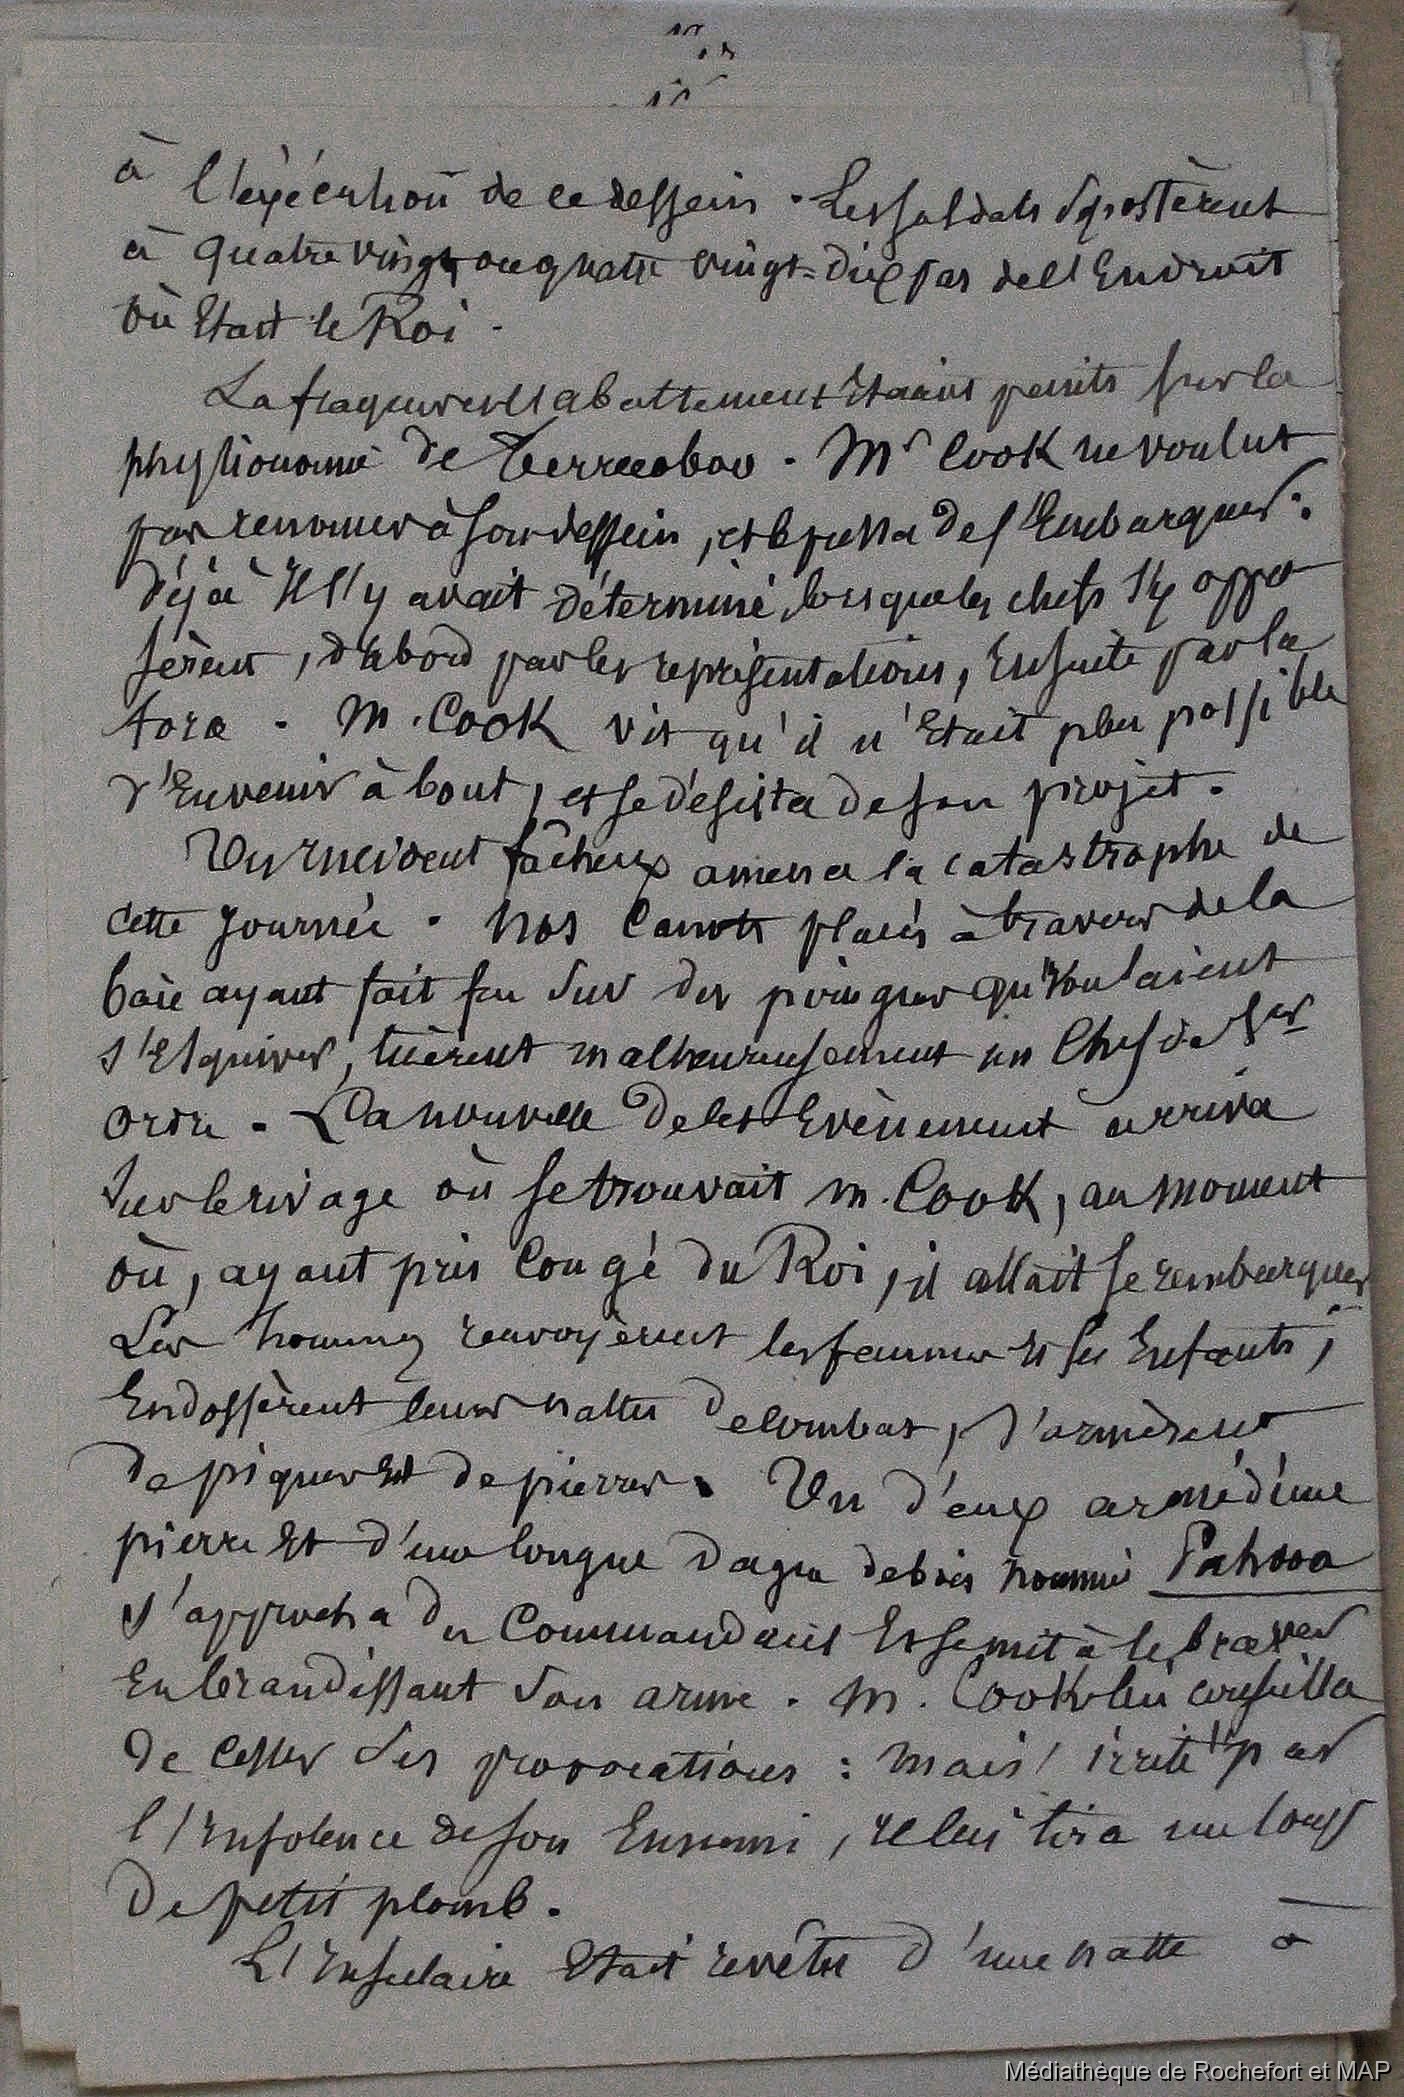 à l'exécution de ce dessein. Les soldats se postèrent
à quatre vingt ou quatre vingt-dix pas de l'Endroit
où Etait le Roi.
La frayeur et l'abattement Etaient peints sur la
physionomie de Terreeoboo. Mr Cook ne voulut
pas renoncer à son dessein, et le pressa de s'Embarquer:
déjà Il l'y avait déterminé, lorsque les chefs s'y oppo
sèrent, d'abord par les représentations, Ensuite par la
force. M. Cook vit qu'il n'Etait plus possible
d'En venir à bout, et se désista de son projet.
Un Incident fâcheux amena la catastrophe de
cette Journée. Nos Canots placés à travers de la
baie ayant fait feu sur des pirogues qui Voulaient
s'Esquiver, tuèrent malheureusement un Chef de 1er
ordre. La nouvelle de cet Evènement arriva
sur le rivage où se trouvait M. Cook, au moment
où, ayant pris Congé du Roi, il allait se rembarquer
Les hommes renvoyèrent les femmes Et les Enfants,
Endossèrent leurs nattes de combat, s'armèrent
de piques Et de pierres. Un d'eux armé d'une
pierre Et d'une longue dague de bois nommée Pahooa
s'approcha du Commandant Et se mit à le braver
En brandissant son arme. M. Cook lui conseilla
de cesser ses provocations: Mais, irrité par
l'Insolence de son Ennemi, Il lui tira un Coup
de petit plomb.
L'Insulaire Etait revêtu d'une natte à